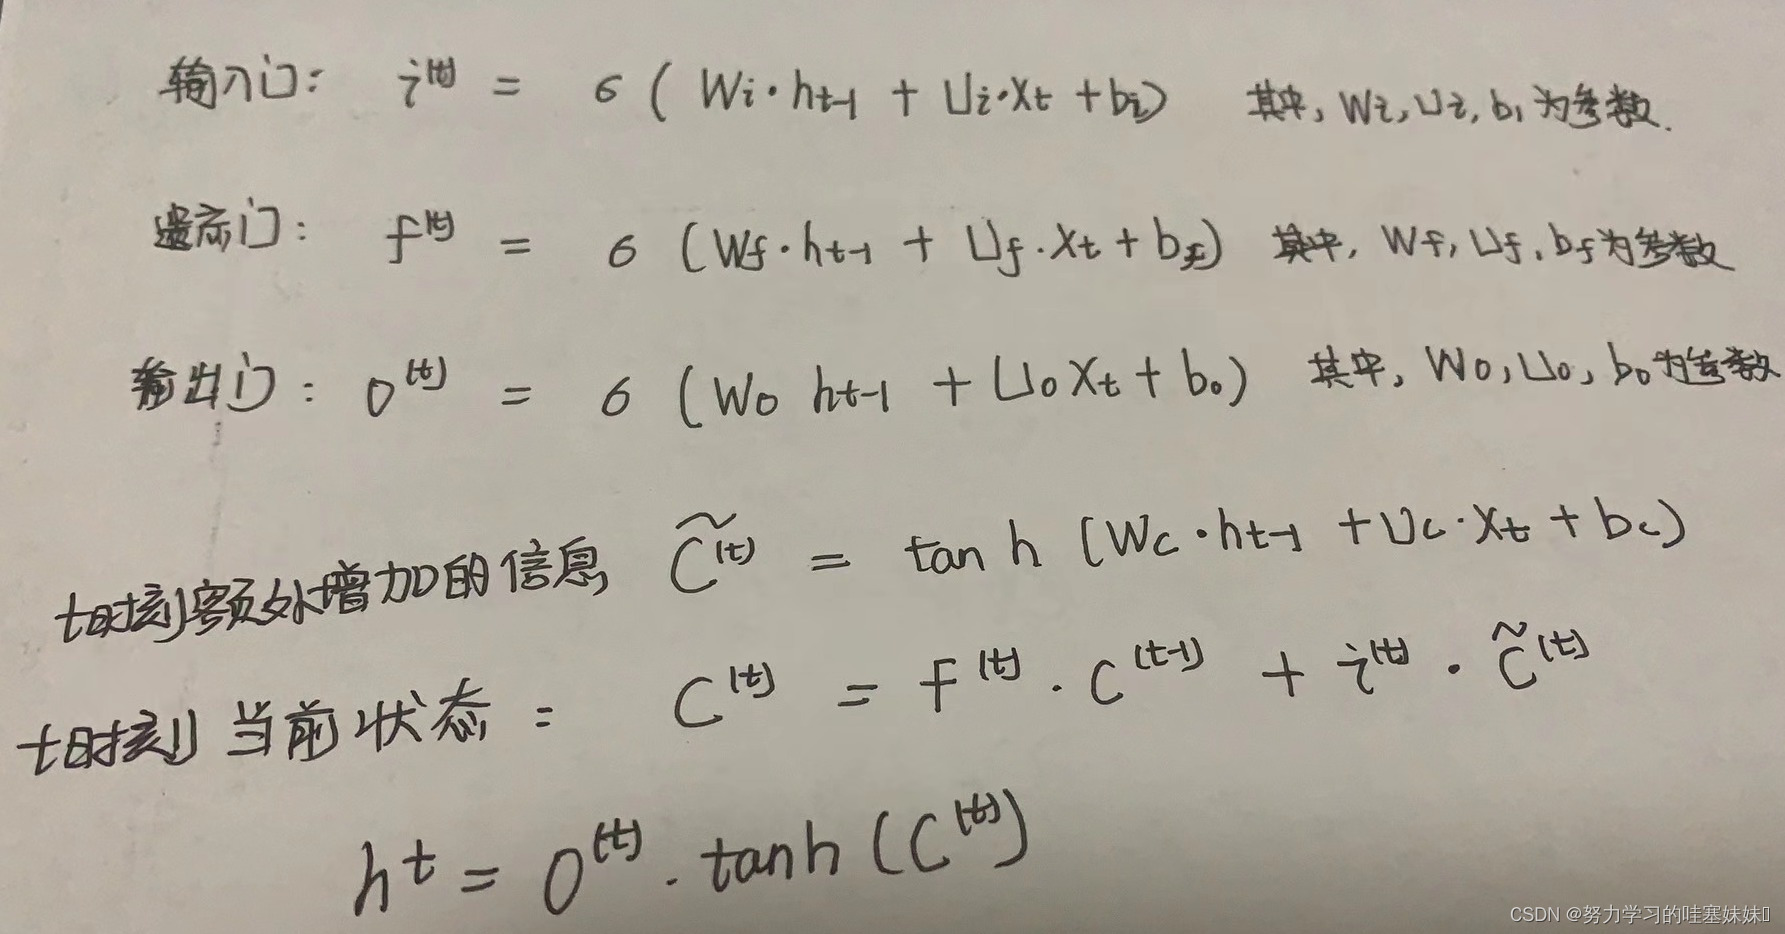 输入门： i⁽ᵗ⁾ = σ ( Wi·ht-1 + Ui·Xt + bi) 其中, Wi, Ui, bi 为参数.
遗忘门： f⁽ᵗ⁾ = σ (Wf·ht-1 + Uf·Xt + bf) 其中, Wf, Uf, bf 为参数
输出门： O⁽ᵗ⁾ = σ (Wo ht-1 + Uo Xt + bo) 其中, Wo, Uo, bo 为参数
t时刻额外增加的信息 C̃⁽ᵗ⁾ = tanh (Wc·ht-1 + Uc·Xt + bc)
t时刻当前状态： C⁽ᵗ⁾ = f⁽ᵗ⁾ · C⁽ᵗ⁻¹⁾ + i⁽ᵗ⁾ · C̃⁽ᵗ⁾
hᵗ = O⁽ᵗ⁾ · tanh (C⁽ᵗ⁾)
CSDN @努力学习的哇塞妹妹